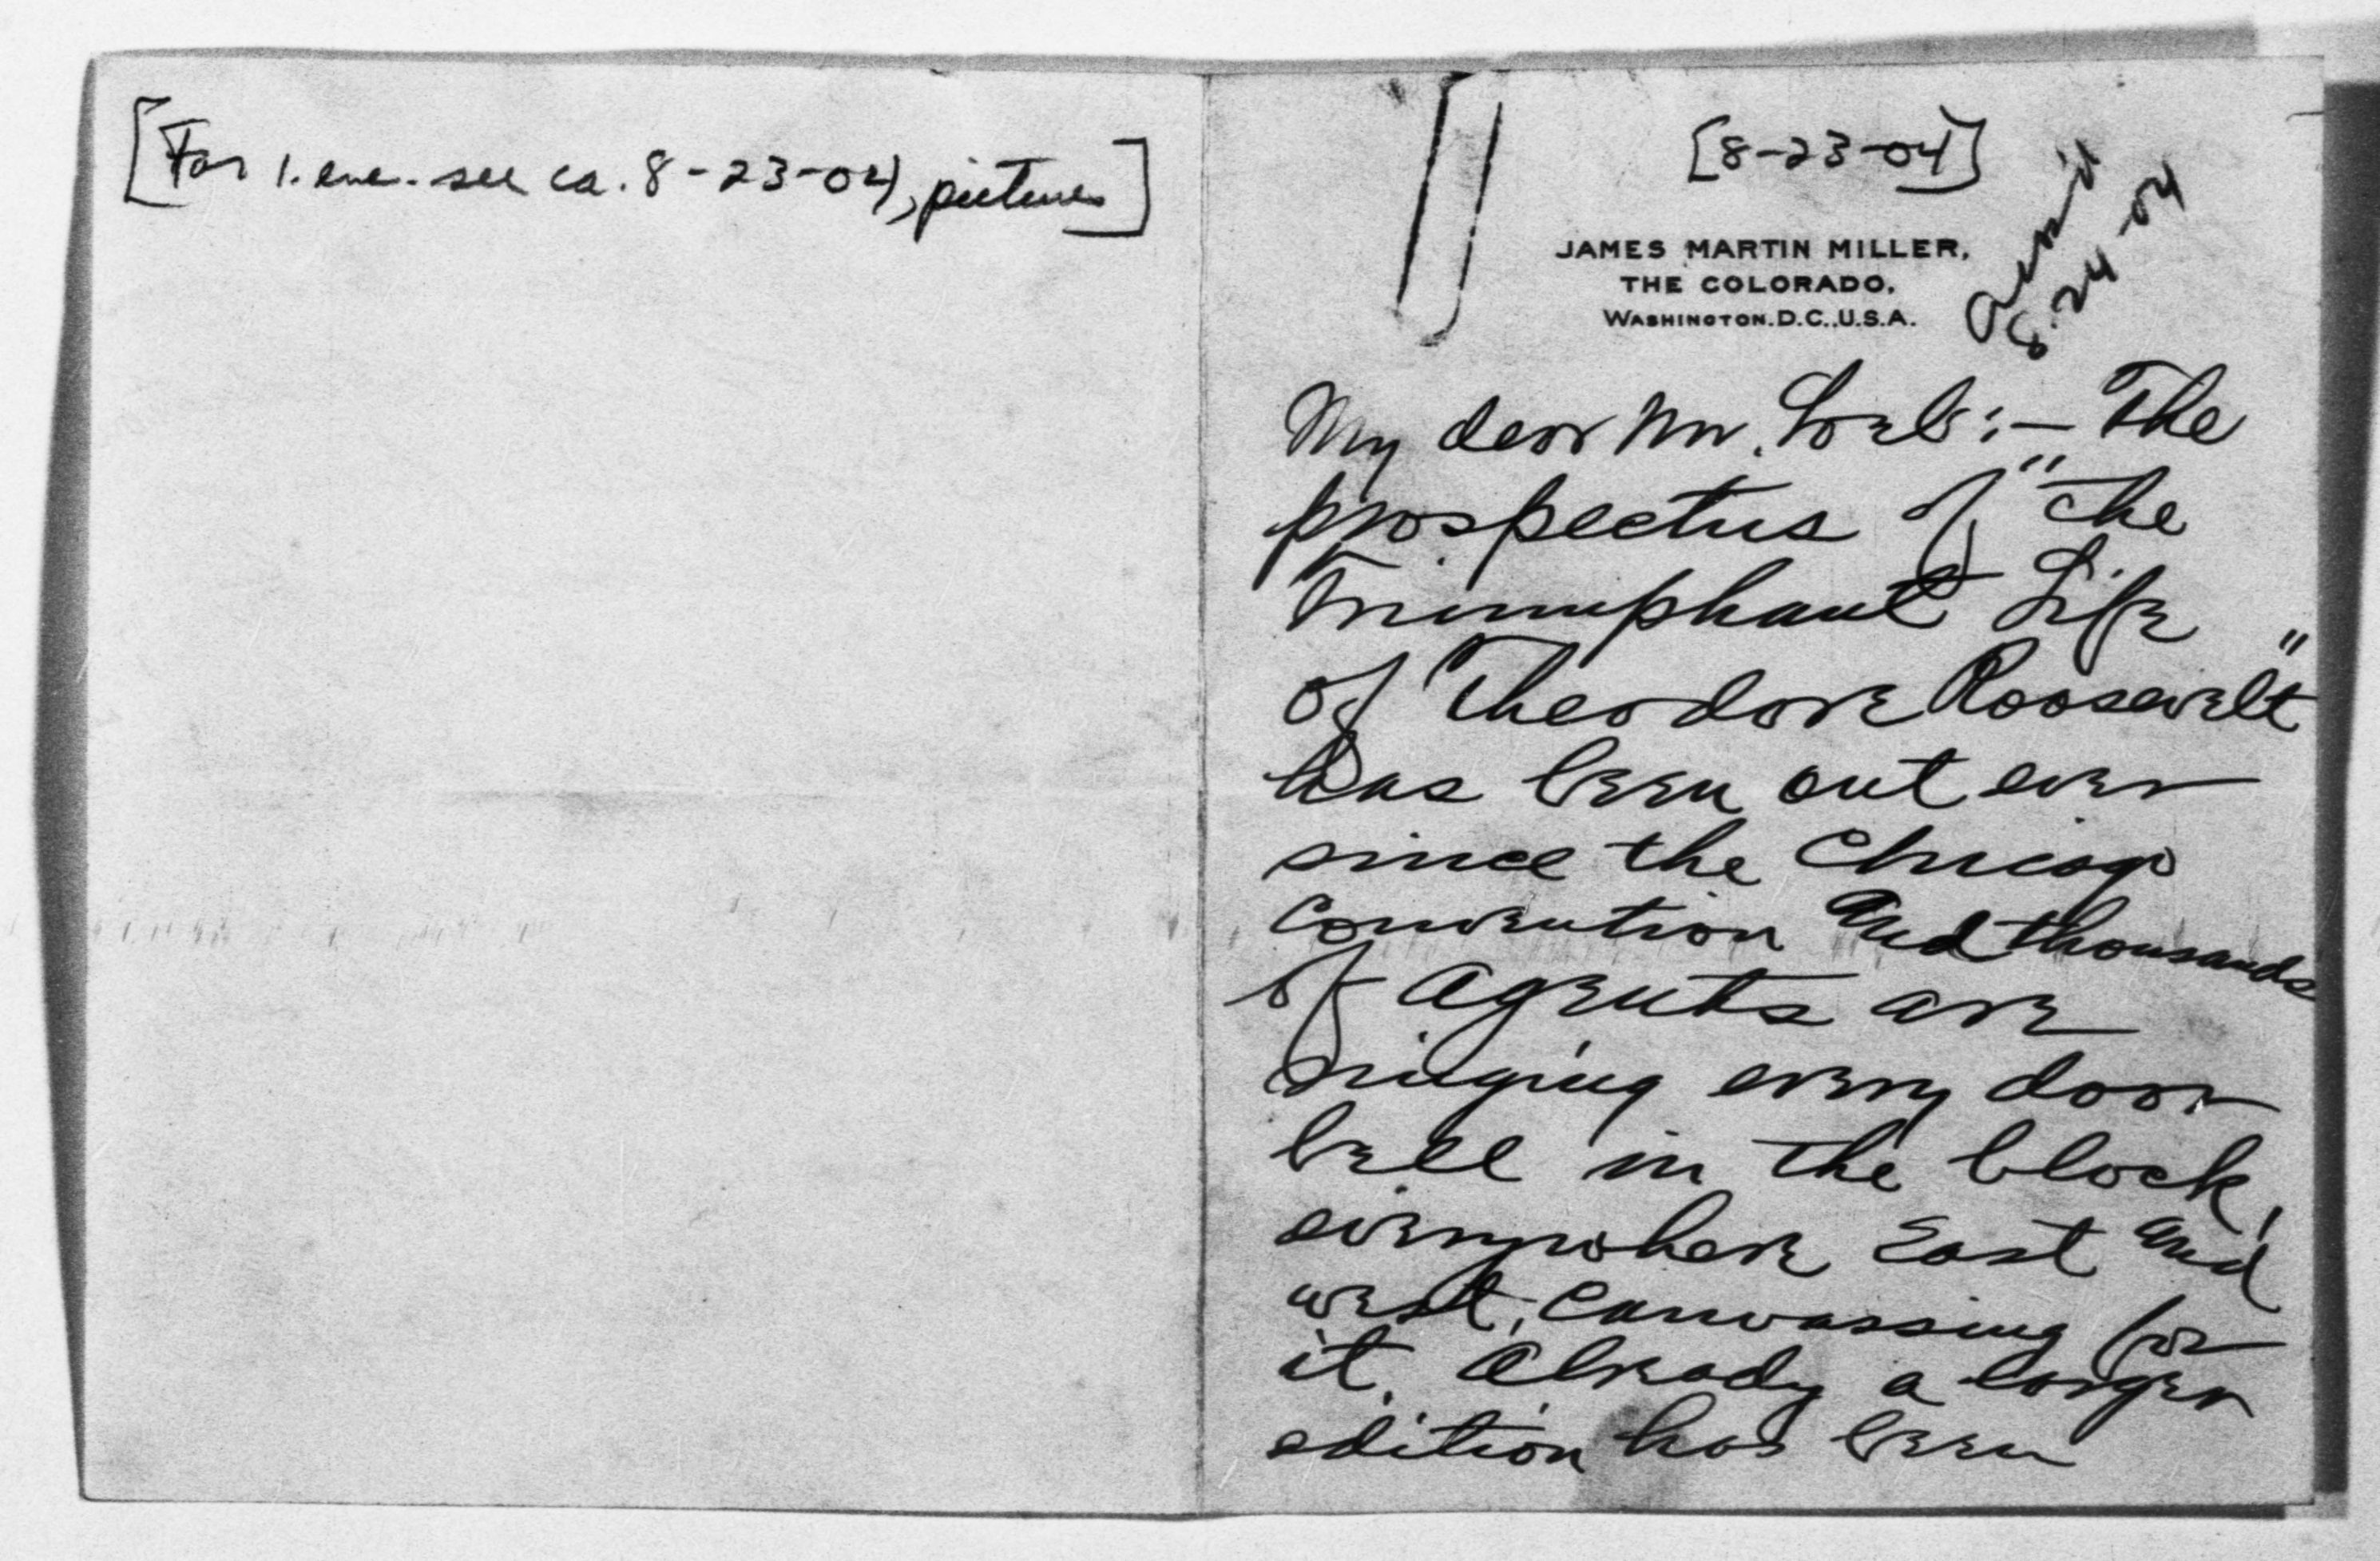 [For 1. enc. see ca. 8-23-04, pictures]
[8-23-04]
Ack'd
8-24-04
JAMES MARTIN MILLER,
THE COLORADO,
WASHINGTON. D.C., U.S.A.
My dear Mr. Loeb:— The
prospectus of "The
Triumphant Life
of Theodore Roosevelt"
has been out ever
since the Chicago
Convention and thousands
of agents are
ringing every door
bell in the block,
everywhere East and
west, canvassing for
it. Already a larger
edition has been